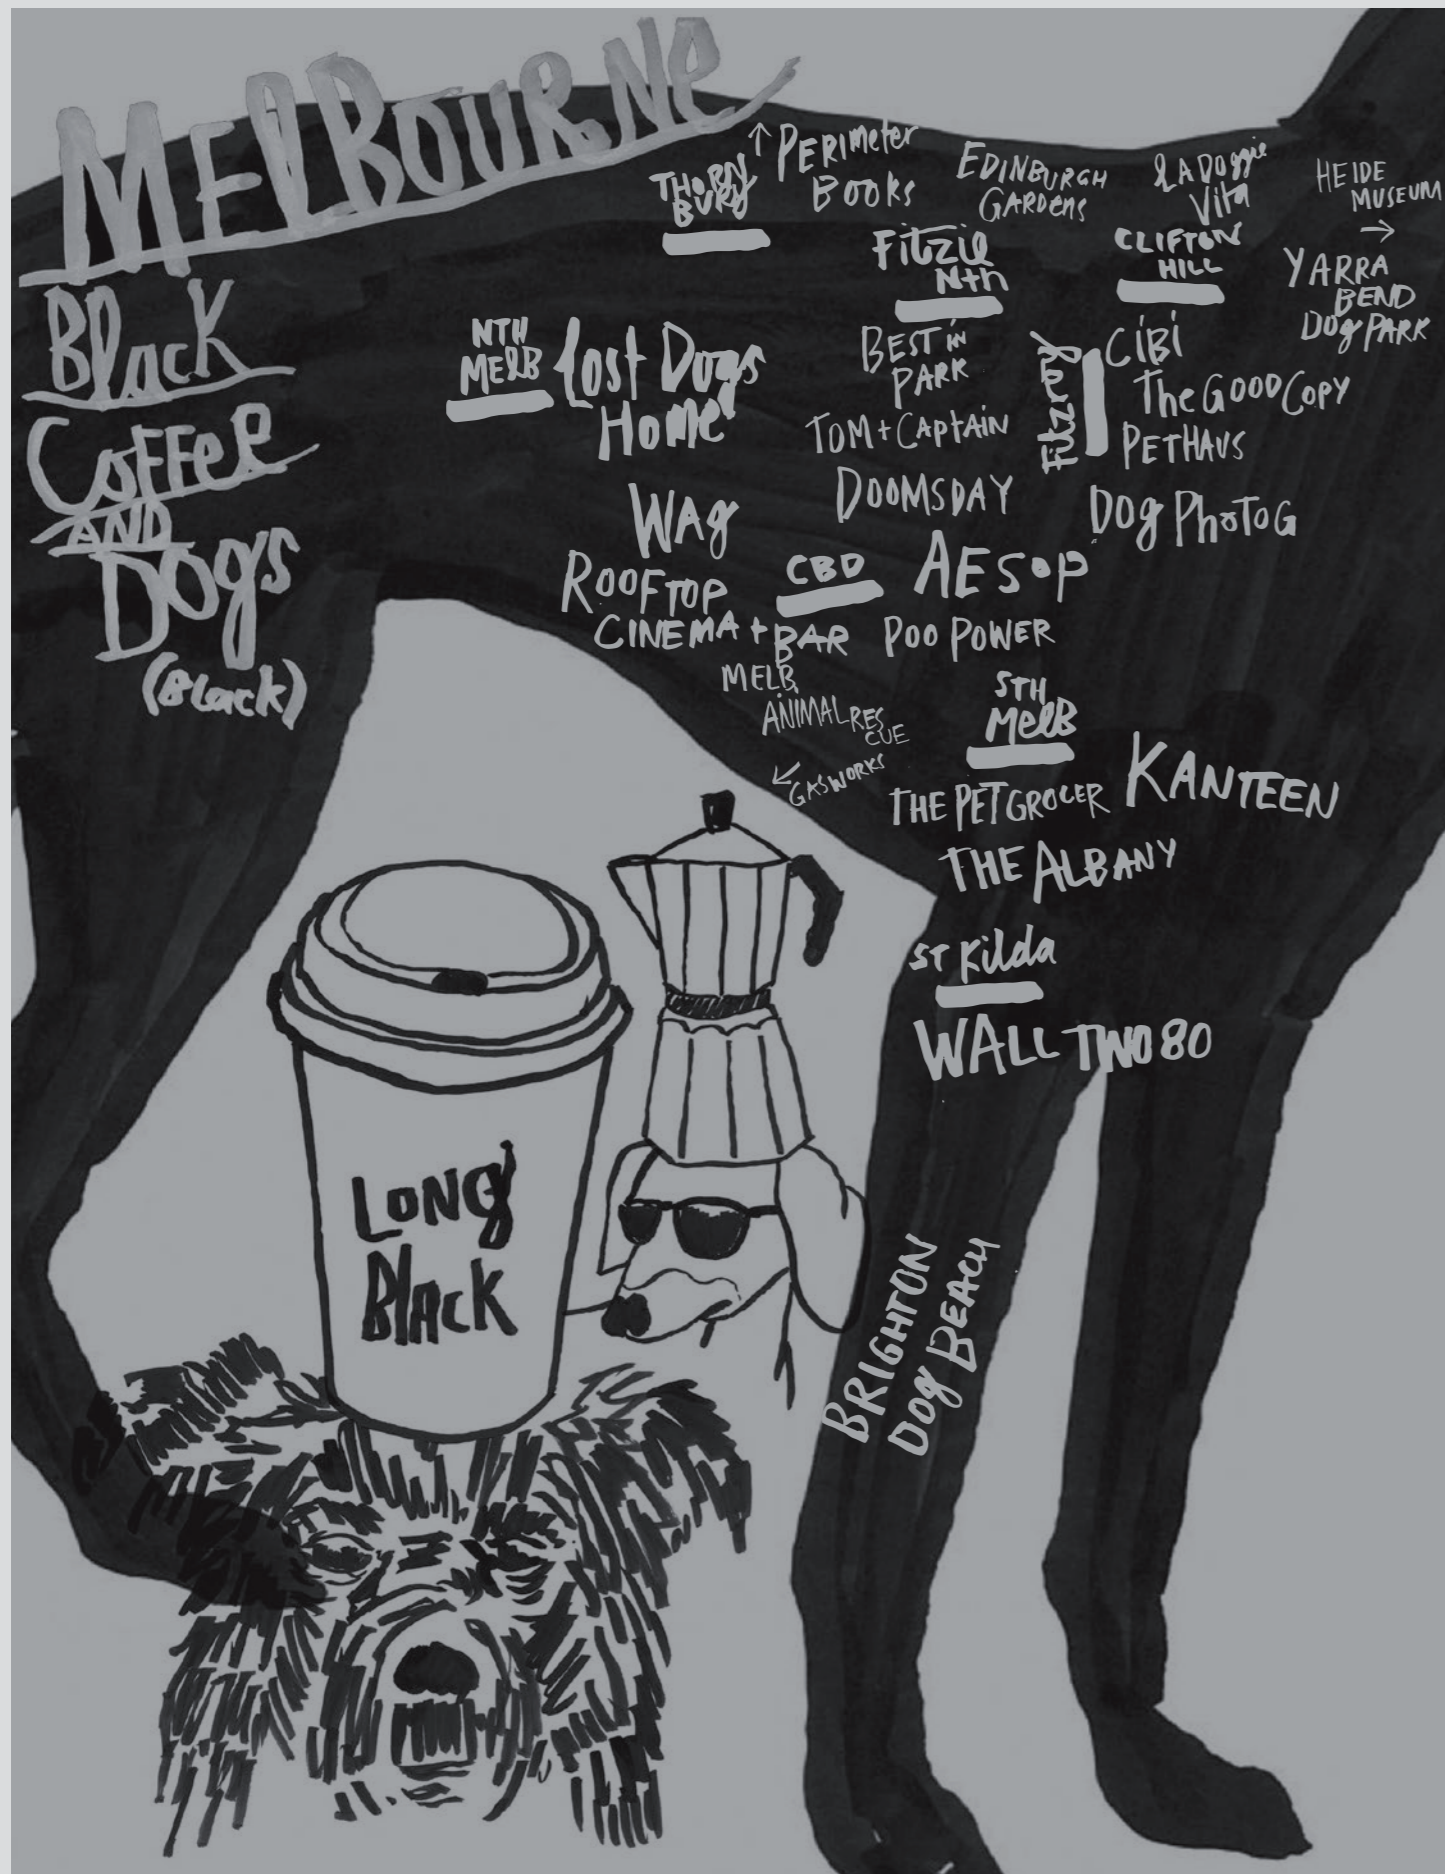 MELBOURNE
Black
Coffee
AND
Dogs
(Black)
↑ PERImeter
Books
THORN
BURY
EDINBURGH
GARDens
LA Doggie
Vita
HEIDE
MUSEUM
→
Fitzie
Nth
CLIFTON
HILL
YARRA
BEND
Dog PARK
NTH
MElB
Lost Dogs
Home
BEST in
PARK
TOM + CAptAiN
DOOMSDAY
Fitzroy
CiBi
The GOOD COPY
PETHAUS
Dog PhoTOG
WAg
ROOFTOP
CINEMA + BAR
CBD
AESOP
POO POWER
MELB
ANIMAL RES
CUE
← GASWORKS
STH
MelB
THE PET GROCER
KANTEEN
THE ALBANY
ST Kilda
WALL TWO 80
LONG
BlACK
BRIGHTON
DOg BEACH